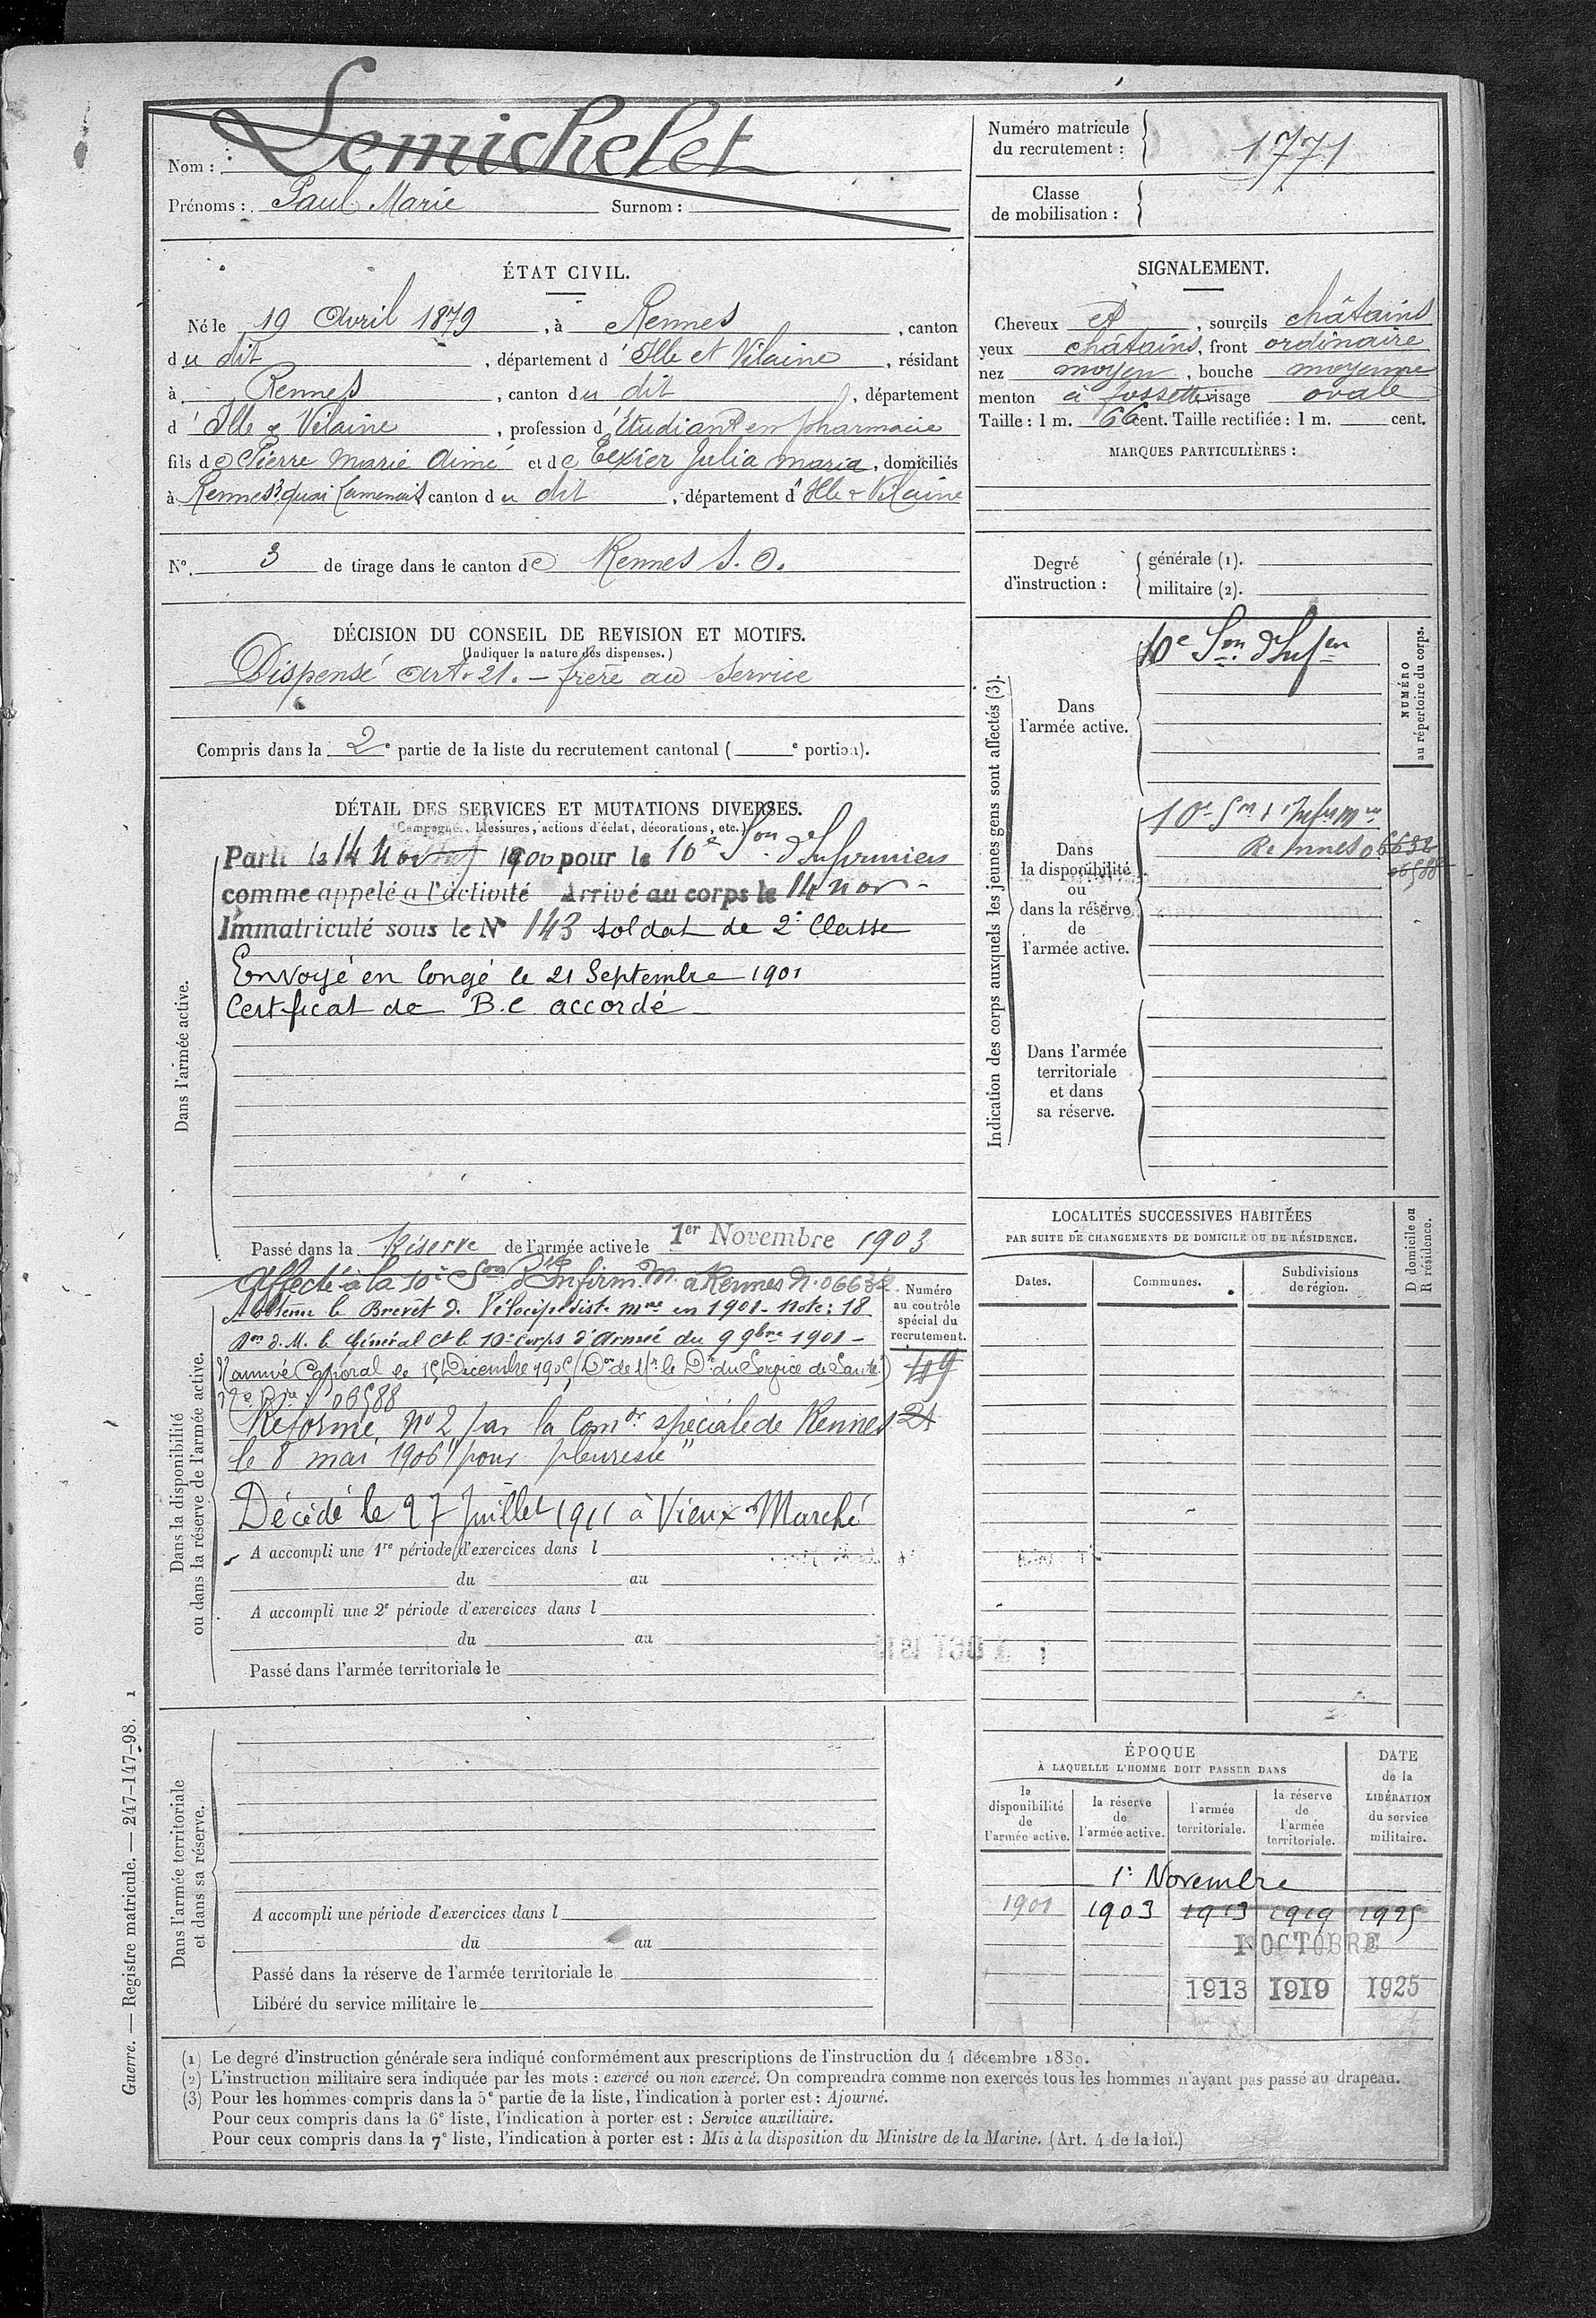 Nom : Lemichelet
Prénoms : Paul Marie Surnom :
Numéro matricule du recrutement : 1771
Classe de mobilisation :
ÉTAT CIVIL.
Né le 19 Avril 1879, à Rennes, canton
du dit, département d'Ille et Vilaine, résidant
à Rennes, canton du dit, département
d'Ille & Vilaine, profession d'Etudiant en pharmacie
fils de Pierre Marie Aimé et de Texier Julia Maria, domiciliés
à Rennes 3 quai Lamennais canton du dit, département d'Ille & Vilaine
N° 3 de tirage dans le canton de Rennes S. O.
SIGNALEMENT.
Cheveux et, sourcils châtains
yeux châtains, front ordinaire
nez moyen, bouche moyenne
menton à fossette visage ovale
Taille : 1 m. 66 cent. Taille rectifiée : 1 m. cent.
MARQUES PARTICULIÈRES :
Degré d'instruction : générale (1).
militaire (2).
DÉCISION DU CONSEIL DE REVISION ET MOTIFS.
(Indiquer la nature des dispenses.)
Dispensé art. 21. – frère au service
Compris dans la 2e partie de la liste du recrutement cantonal ( e portion).
DÉTAIL DES SERVICES ET MUTATIONS DIVERSES.
(Campagnes, blessures, actions d'éclat, décorations, etc.)
Dans l'armée active.
Parti le 14 Nov 1900 pour le 10e Son d'Infirmiers
comme appelé à l'activité Arrivé au corps le 14 nov
Immatriculé sous le N° 143 soldat de 2e Classe
Envoyé en Congé le 21 Septembre 1901
Certificat de B.C. accordé
Passé dans la Réserve de l'armée active le 1er Novembre 1903
Dans la disponibilité
ou dans la réserve de l'armée active.
Affecté à la 10e Son d'Infirm. M. à Rennes N. 06632
A obtenu le Brevet de Vélocipédiste mre en 1901 - Note : 18
Don d. M. le Général Ct le 10e Corps d'Armée du 9 9bre 1901 -
Nommé Caporal le 15 Decembre 1905 (Don de Mr le Dr du Service de Santé)
06588
Réformé N° 2 par la Comon spéciale de Rennes
le 8 mai 1906 "pour pleurésie"
Décédé le 27 Juillet 1911 à Vieux Marché
A accompli une 1re période d'exercices dans l
du au
A accompli une 2e période d'exercices dans l
du au
Passé dans l'armée territoriale le
Numéro
au contrôle
spécial du
recrutement.
Dans l'armée territoriale
et dans sa réserve.
A accompli une période d'exercices dans l
du au
Passé dans la réserve de l'armée territoriale le
Libéré du service militaire le
Indication des corps auxquels les jeunes gens sont affectés (3).
NUMÉRO
au répertoire du corps.
Dans
l'armée active.
10e Son d'Infen
Dans
la disponibilité
ou
dans la réserve
de
l'armée active.
10e Son d'Infirm
Rennes 06632
06588
Dans l'armée
territoriale
et dans
sa réserve.
LOCALITÉS SUCCESSIVES HABITÉES
PAR SUITE DE CHANGEMENTS DE DOMICILE OU DE RÉSIDENCE.
D domicile ou
R résidence.
Dates.
Communes.
Subdivisions
de région.
ÉPOQUE
À LAQUELLE L'HOMME DOIT PASSER DANS
la
disponibilité
de
l'armée active.
la réserve
de
l'armée active.
l'armée
territoriale.
la réserve
de
l'armée
territoriale.
DATE
de la
LIBÉRATION
du service
militaire.
1er Novembre
1901 1903 1913 1919 1925
1er OCTOBRE
1913 1919 1925
(1) Le degré d'instruction générale sera indiqué conformément aux prescriptions de l'instruction du 4 décembre 1889.
(2) L'instruction militaire sera indiquée par les mots : exercé ou non exercé. On comprendra comme non exercés tous les hommes n'ayant pas passé au drapeau.
(3) Pour les hommes compris dans la 5e partie de la liste, l'indication à porter est : Ajourné.
Pour ceux compris dans la 6e liste, l'indication à porter est : Service auxiliaire.
Pour ceux compris dans la 7e liste, l'indication à porter est : Mis à la disposition du Ministre de la Marine. (Art. 4 de la loi.)
Guerre. — Registre matricule. — 247-147-98. 1